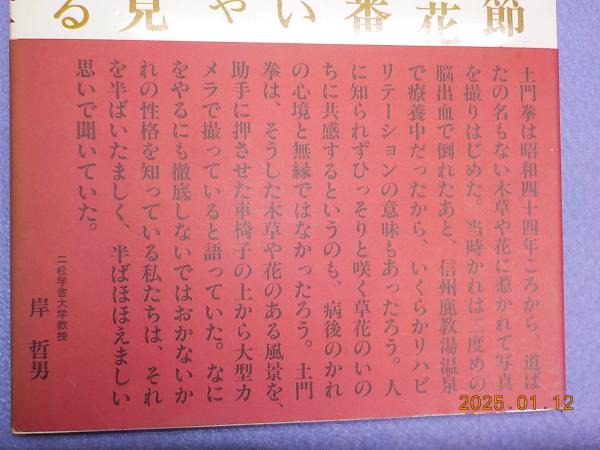 る見やい番花節
土門拳は昭和四十四年ころから、道ば
たの名もない木草や花に惹かれて写真
を撮りはじめた。当時かれは二度めの
脳出血で倒れたあと、信州鹿教湯温泉
で療養中だったから、いくらかリハビ
リテーションの意味もあったろう。人
に知られずひっそりと咲く草花のいの
ちに共感するというのも、病後のかれ
の心境と無縁ではなかったろう。土門
拳は、そうした木草や花のある風景を、
助手に押させた車椅子の上から大型カ
メラで撮っていると語っていた。なに
をやるにも徹底しないではおかないか
れの性格を知っている私たちは、それ
を半ばいたましく、半ばほほえましい
思いで聞いていた。
二松学舎大学教授
岸哲男
2025.01.12